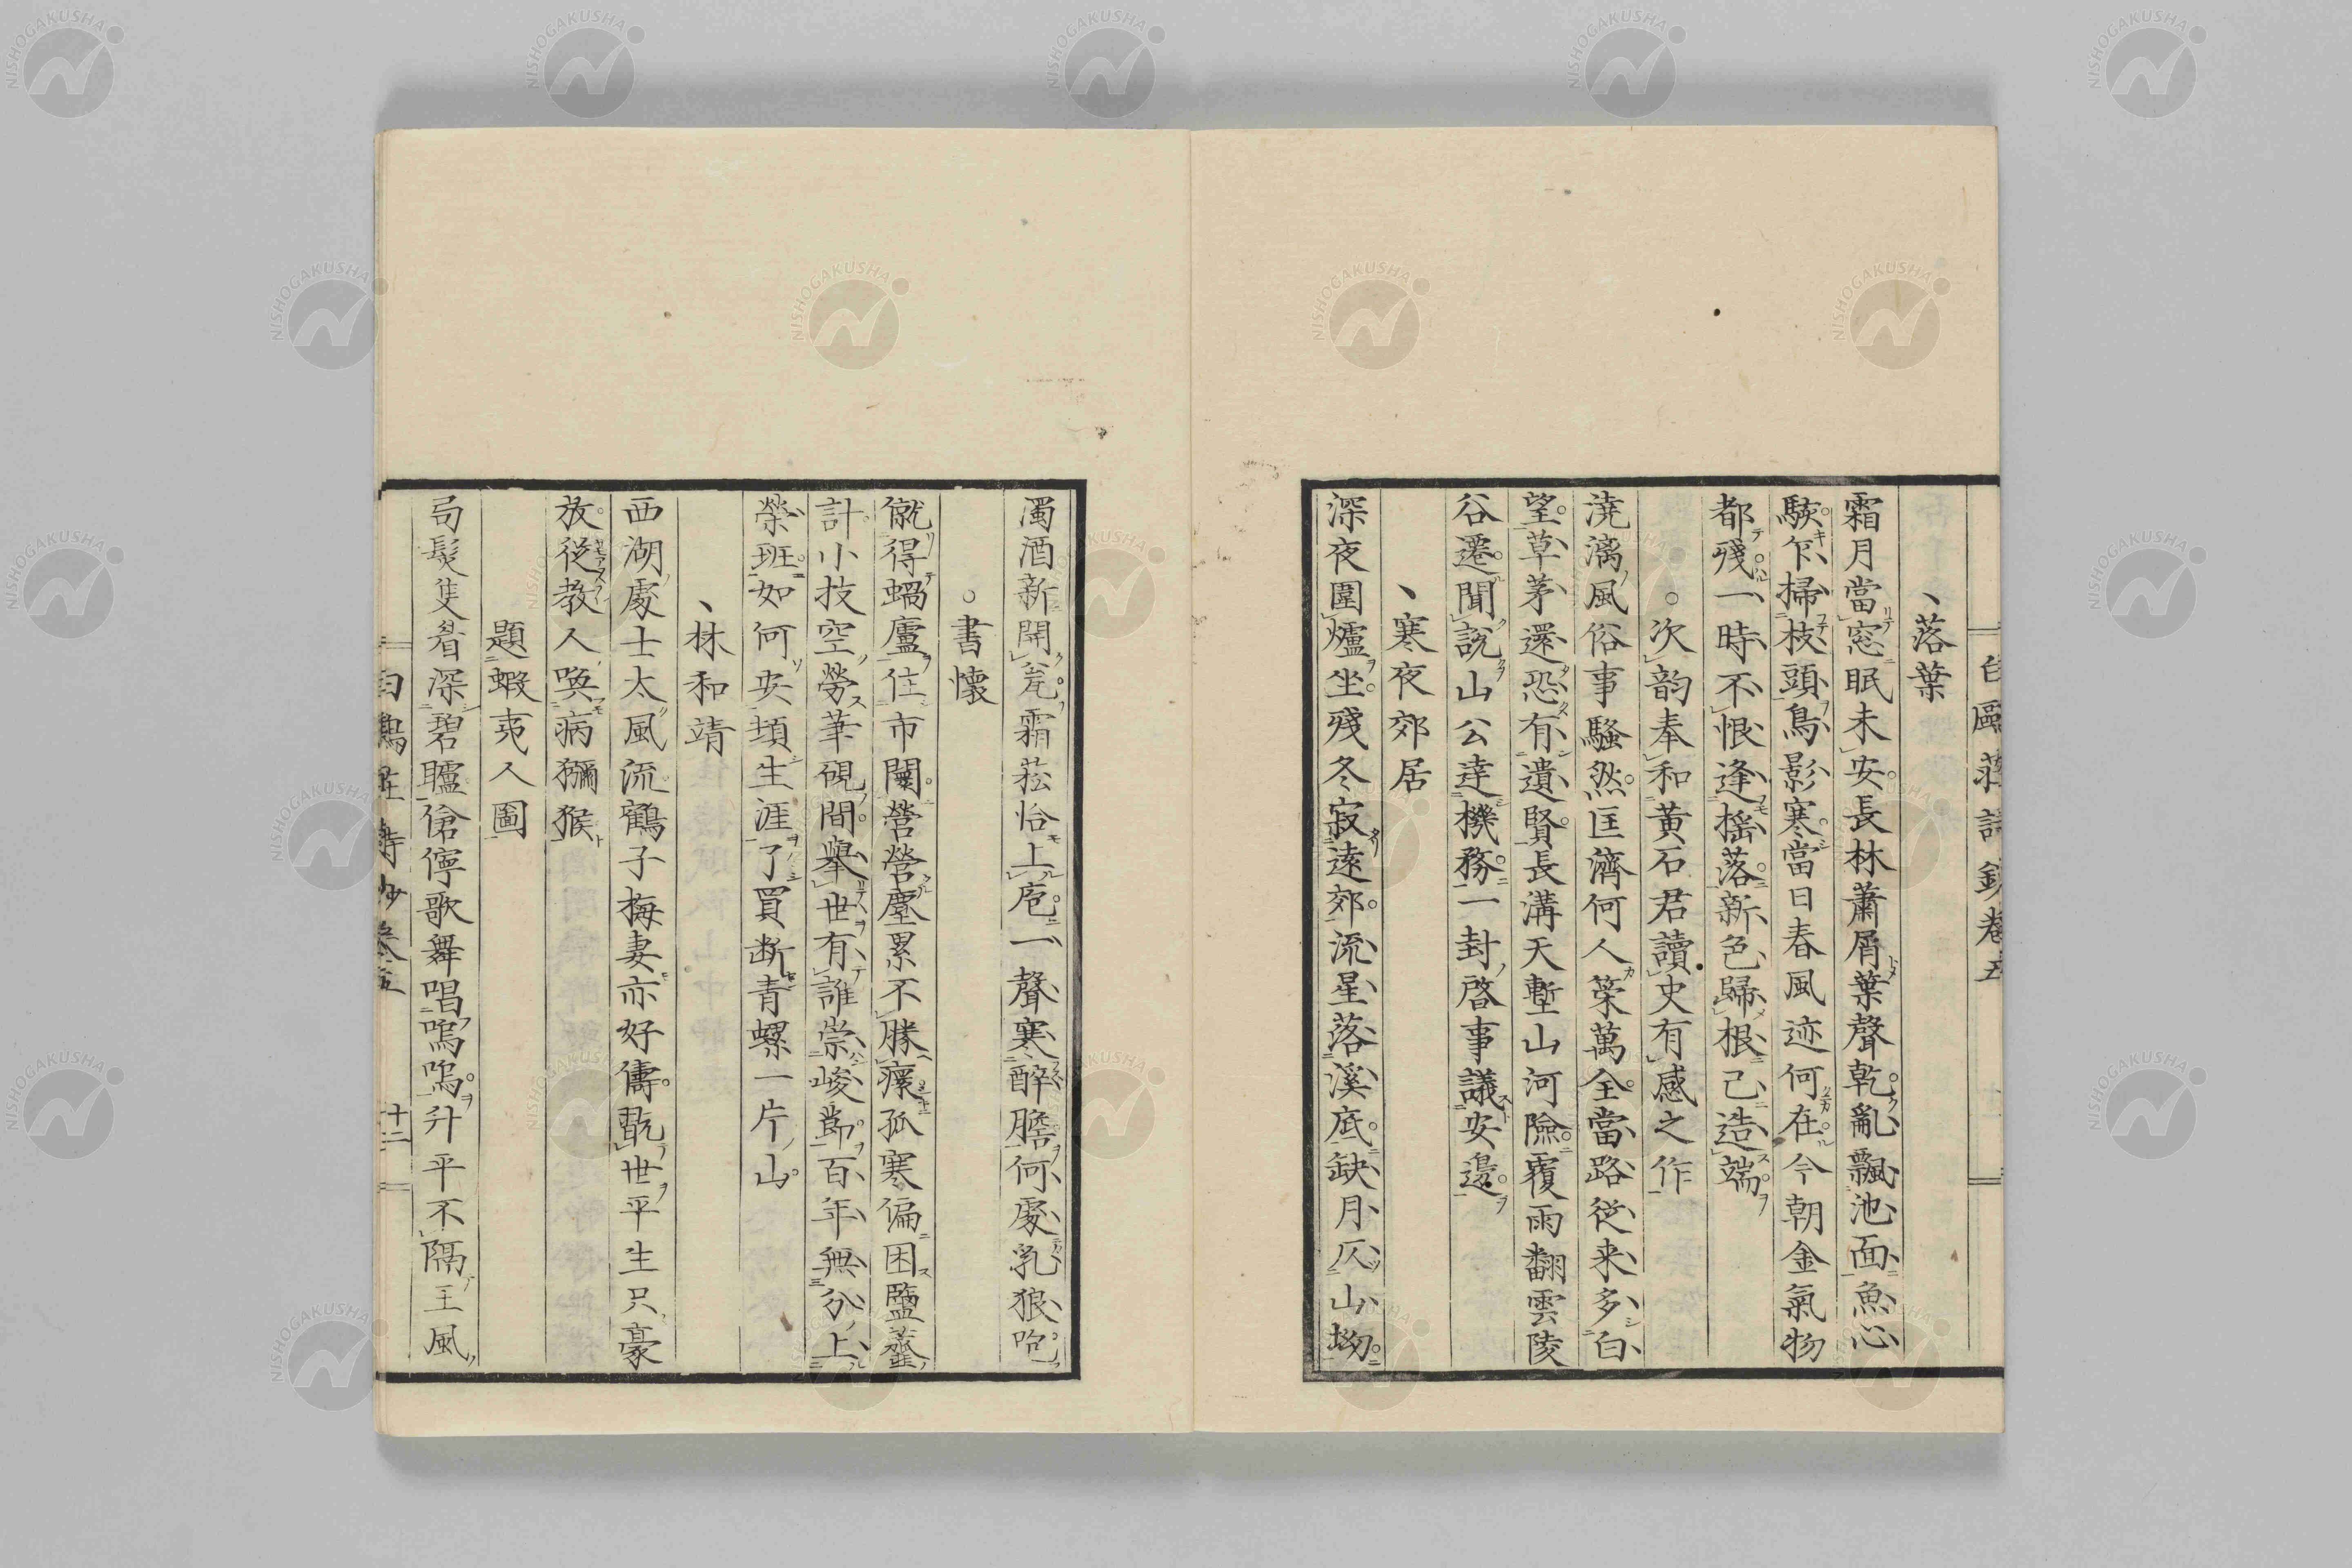 落葉
霜月當窓眠未安長林蕭屑葉聲乾亂飄池面魚心
駭乍掃枝頭鳥影寒當日春風迹何在今朝金氣物
都殘一時不恨逢搖落新色歸根已造端
次韵奉和黄石君讀史有感之作
澆漓風俗事騷然匡濟何人策萬全當路從来多白
望草茅還恐有遺賢長溝天塹山河險覆雨翻雲陵
谷遷聞說山公達機務一封啓事議安邊
寒夜郊居
深夜圍爐坐殘冬寂遠郊流星落溪底缺月仄山坳
濁酒新開瓮霜菘恰上庖一聲寒醉膽何處乳狼咆
書懷
僦得蝸廬住市闤營營塵累不勝癏孤寒偏困鹽虀
計小技空勞筆硯間擧世有誰崇峻節百年無分上
榮班如何安頓生涯了買断青螺一片山
林和靖
西湖處士太風流鶴子梅妻亦好儔翫世平生只豪
放從教人喚病獼猴
題蝦夷人圖
髮隻眷深碧矑傖儜歌舞唱嗚嗚升平不隔王風
十二
NISHOGAKUSHA